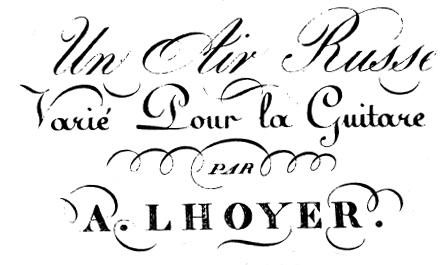 Un Air Russe
Varié Pour la Guitare
PAR
A. LHOYER.